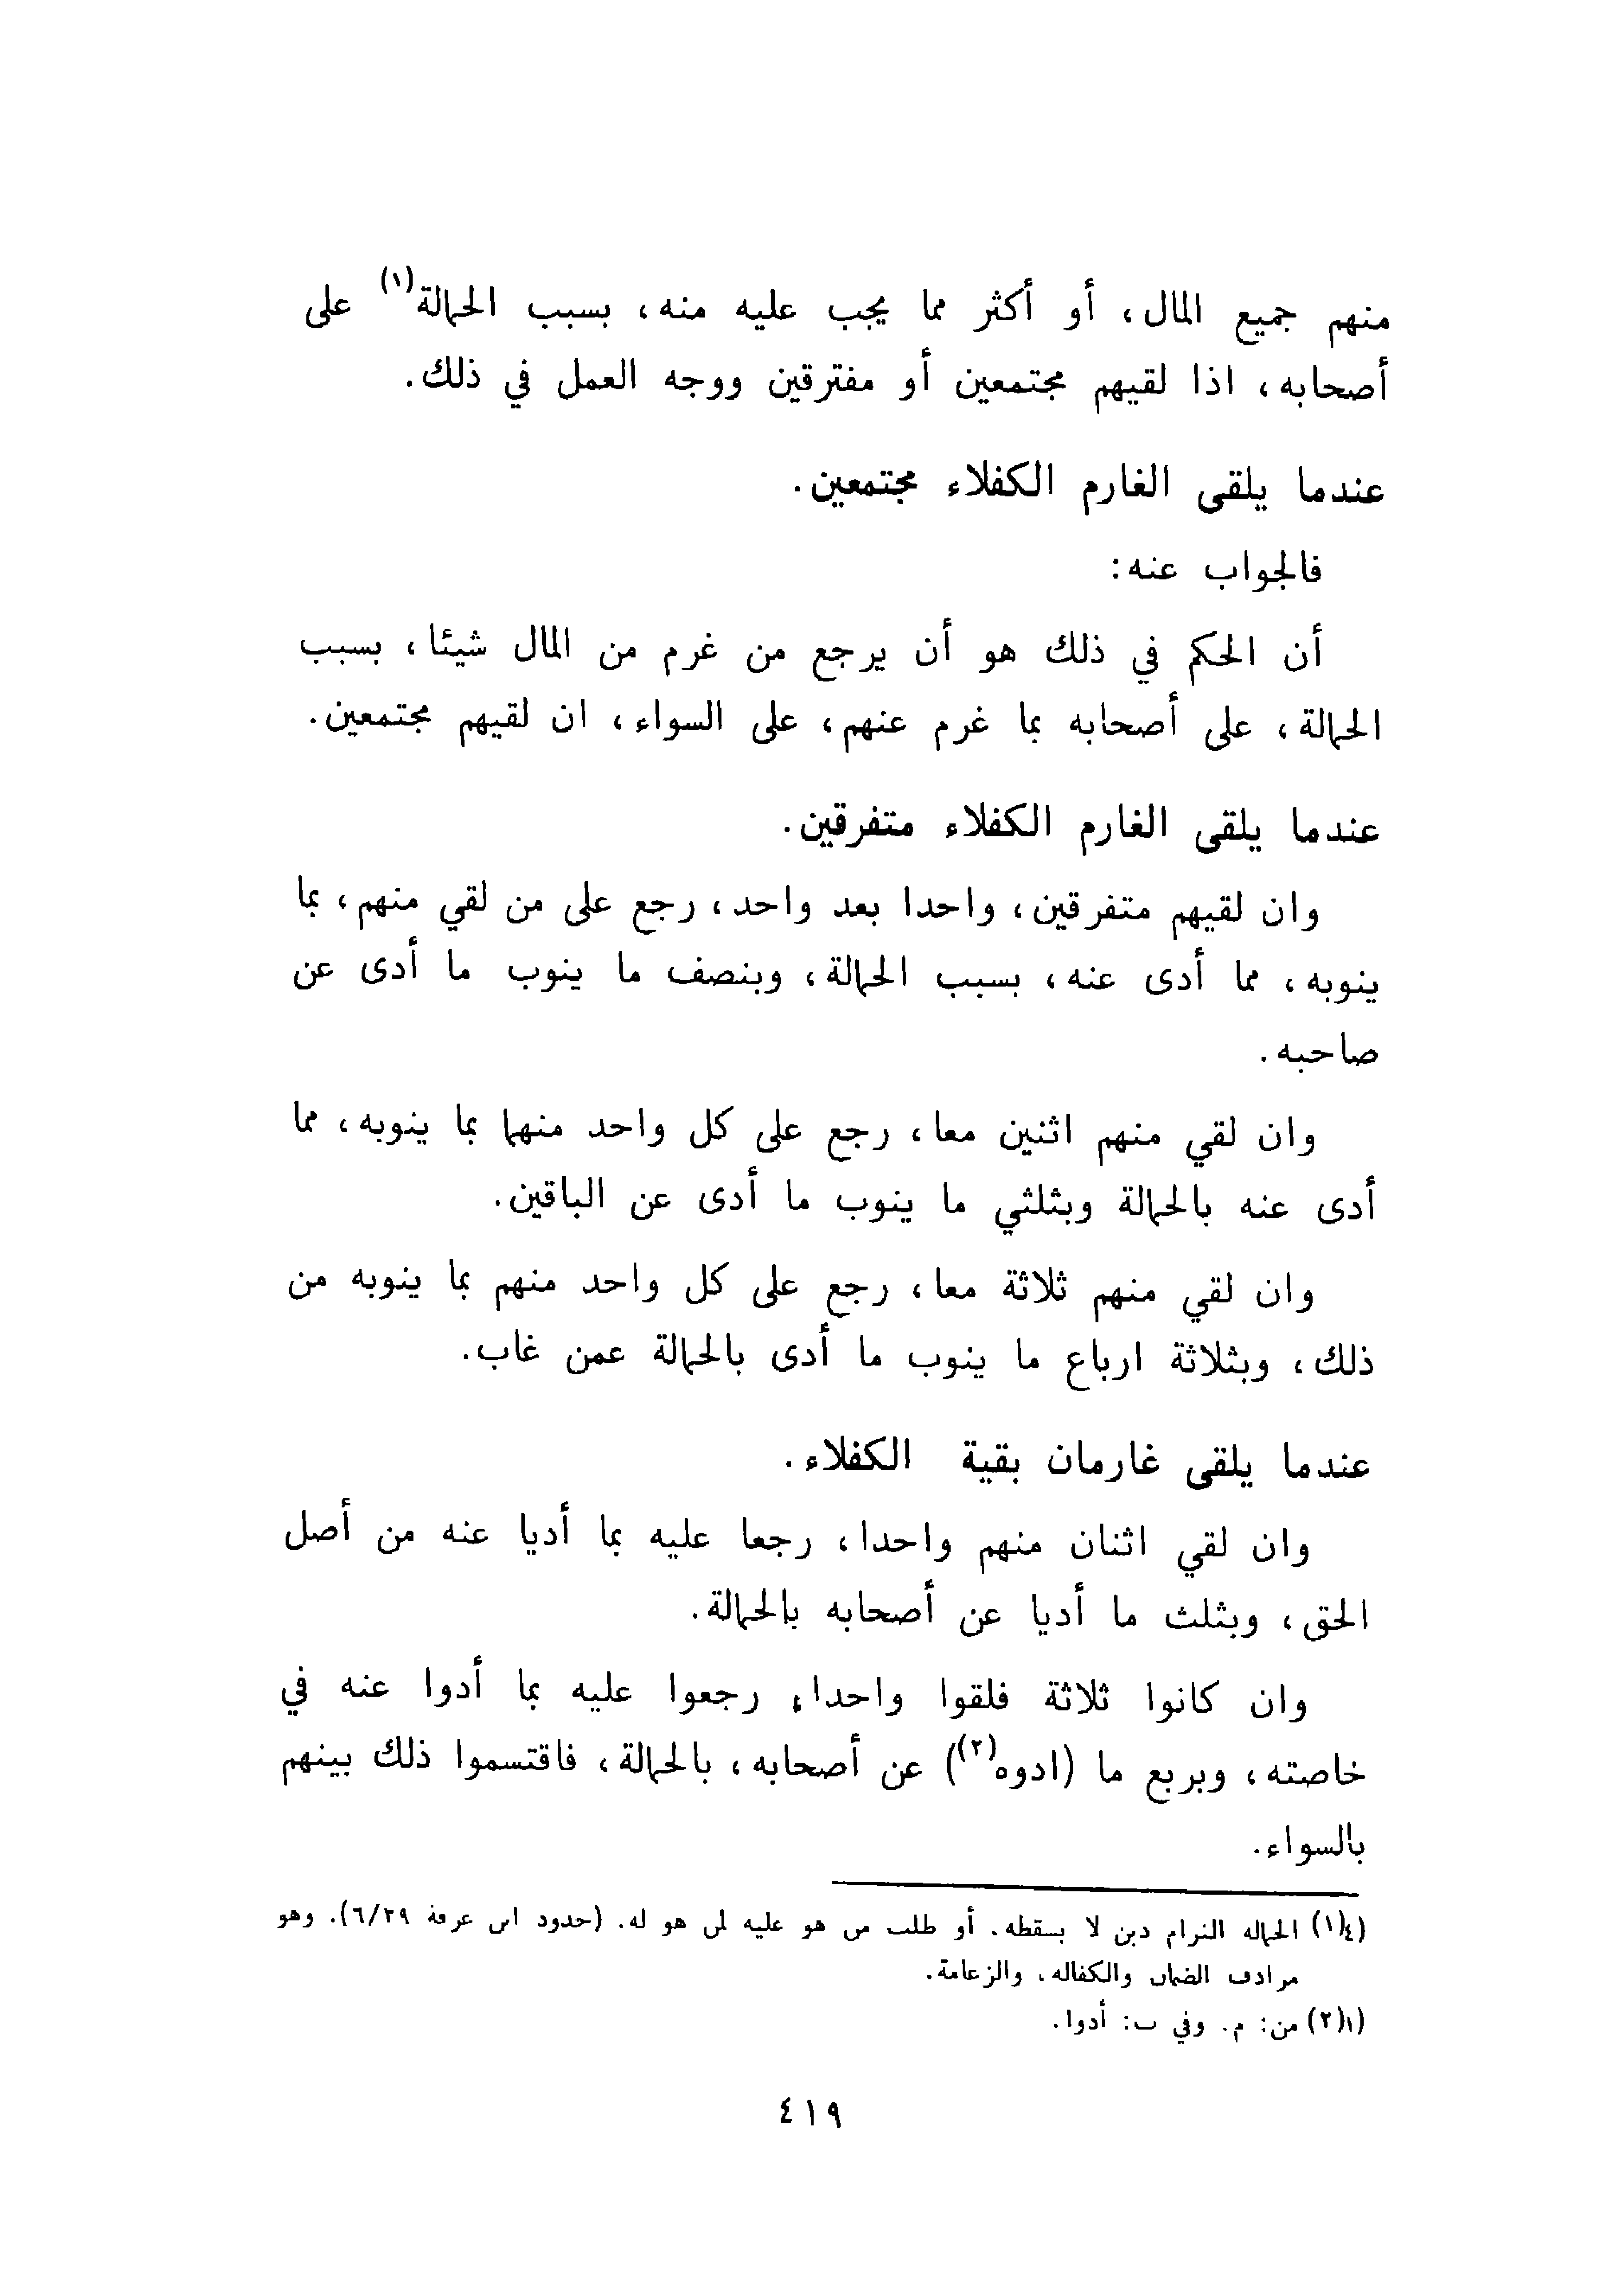 منهم جميع المال، أو أكثر مما يجب عليه منه، بسبب الحمالة(١) على
أصحابه، اذا لقيهم مجتمعين أو مفترقين ووجه العمل في ذلك.
عندما يلقى الغارم الكفلاء مجتمعين.
فالجواب عنه:
أن الحكم في ذلك هو أن يرجع من غرم من المال شيئا، بسبب
الحمالة، على أصحابه بما غرم عنهم، على السواء، ان لقيهم مجتمعين.
عندما يلقى الغارم الكفلاء متفرقين.
وان لقيهم متفرقين، واحدا بعد واحد، رجع على من لقي منهم، بما
ينوبه، مما أدى عنه، بسبب الحمالة، وبنصف ما ينوب ما أدى عن
صاحبه.
وان لقي منهم اثنين معا، رجع على كل واحد منهما بما ينوبه، مما
أدى عنه بالحمالة وبثلثي ما ينوب ما أدى عن الباقين.
وان لقي منهم ثلاثة معا، رجع على كل واحد منهم بما ينوبه من
ذلك، وبثلاثة ارباع ما ينوب ما أدى بالحمالة عمن غاب.
عندما يلقى غارمان بقية الكفلاء.
وان لقي اثنان منهم واحدا، رجعا عليه بما أديا عنه من أصل
الحق، وبثلث ما أديا عن أصحابه بالحمالة.
وان كانوا ثلاثة فلقوا واحدا، رجعوا عليه بما أدوا عنه في
خاصته، وبربع ما (ادوه(٢)) عن أصحابه، بالحمالة، فاقتسموا ذلك بينهم
بالسواء.
(٤(١) الحماله التزام دين لا يسقطه. أو طلب من هو عليه لمن هو له. (حدود ابن عرفة ٦/٢٩). وهو
مرادف الضمان والكفاله، والزعامة.
(١(٢) من: م. وفي ب: أدوا.
٤١٩